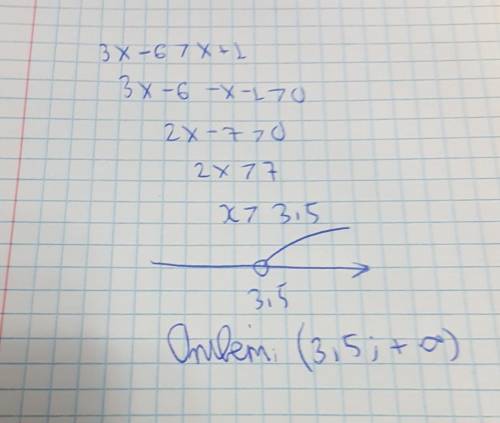 3x-6>x+1
3x-6-x-1>0
2x-7>0
2x>7
x>3,5
3,5
Ответ: (3,5;+∞)